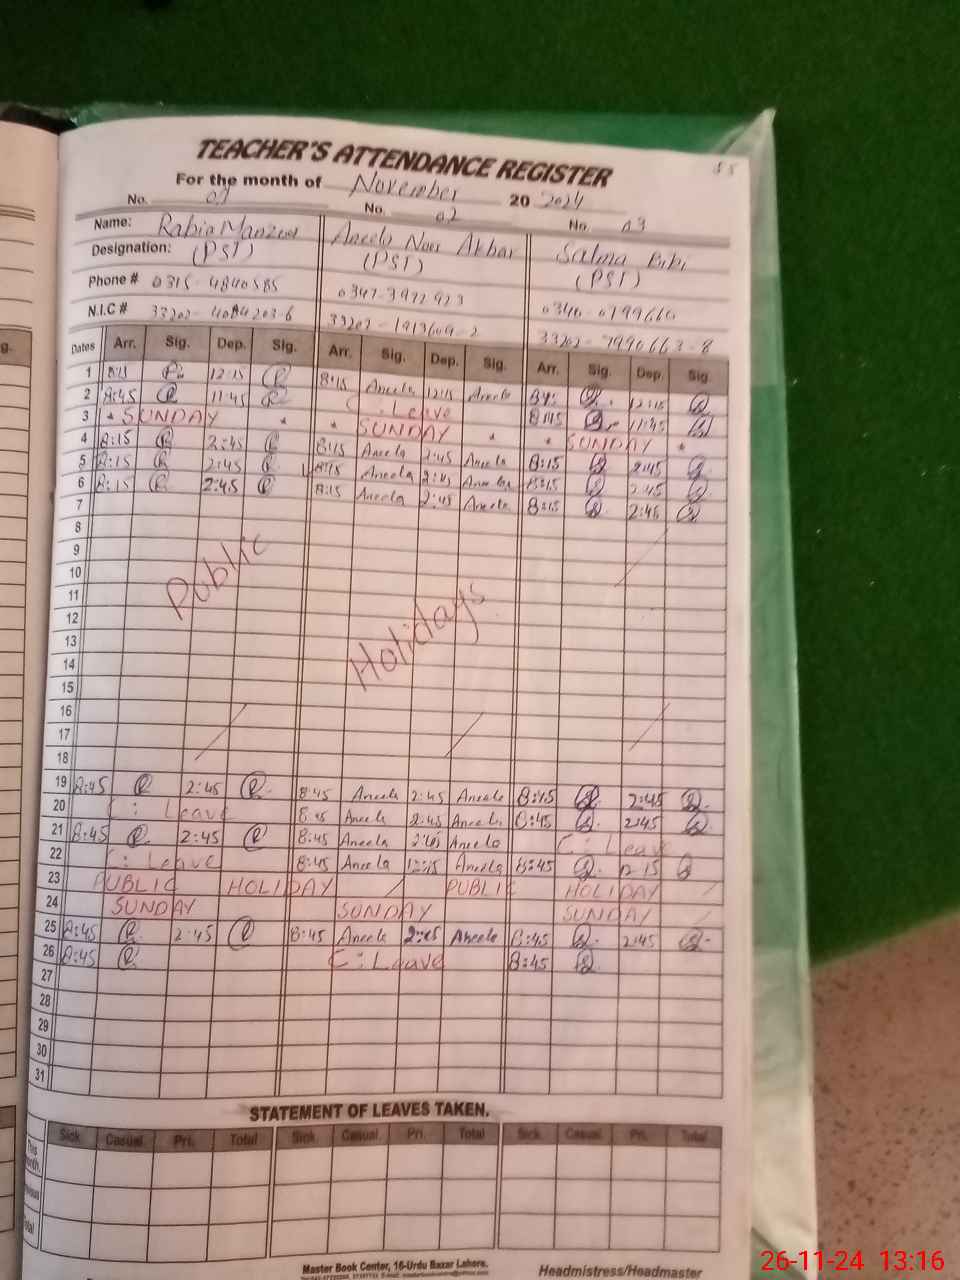 TEACHER'S ATTENDANCE REGISTER
For the month of November 20 2024
No. 01 No. 02 No. 03
Name: Rabia Manzoor Aneela Noor Akbar Salma Bibi
Designation: (PST) (PST) (PST)
Phone # 0315-4840585 0347-3972923 0340-0199660
N.I.C # 33202- 33202-1913609-2 33202-7990663-8
Dates Arr. Sig. Dep. Sig. Arr. Sig. Dep. Sig. Arr. Sig. Dep. Sig.
1 12:15 8:15 Aneela 12:15 Aneela 12:15
2 8:45 11:45 C: Leave 8:45 11:45
3 SUNDAY SUNDAY SUNDAY
4 8:15 2:45 8:15 Aneela 2:45 Aneela 8:15 2:45
5 8:15 2:45 8:15 Aneela 2:45 Aneela 8:15 2:45
6 8:15 2:45 8:15 Aneela 2:45 Aneela 8:15 2:45
7
8
9
10
11
12
13
14
15
16
17
18
Public Holidays
19 8:45 2:45 8:45 Aneela 2:45 Aneela 8:45 2:45
20 C: Leave 8:45 Aneela 2:45 Aneela 8:45 2:45
21 8:45 2:45 8:45 Aneela 2:45 Aneela C: Leave
22 C: Leave 8:45 Aneela 12:15 Aneela 8:45 12:15
23 PUBLIC HOLIDAY PUBLIC HOLIDAY
24 SUNDAY SUNDAY SUNDAY
25 8:45 2:45 8:45 Aneela 2:45 Aneela 8:45 2:45
26 8:45 C: Leave 8:45
27
28
29
30
31
STATEMENT OF LEAVES TAKEN.
Sick. Casual. Pri. Total Sick. Casual. Pri. Total Sick. Casual. Pri. Total
This
Master Book Center, 16-Urdu Bazar Lahore.
Headmistress/Headmaster
26-11-24 13:16